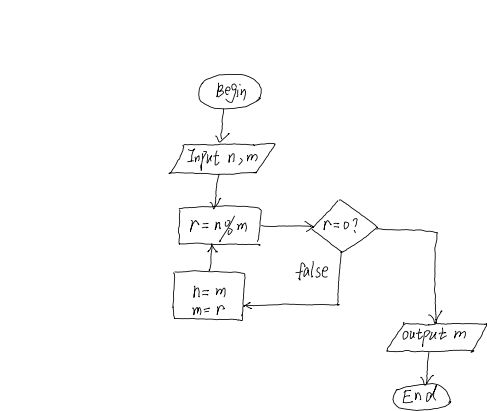 Begin
Input n,m
r=n%m
r=0?
false
n=m
m=r
output m
End